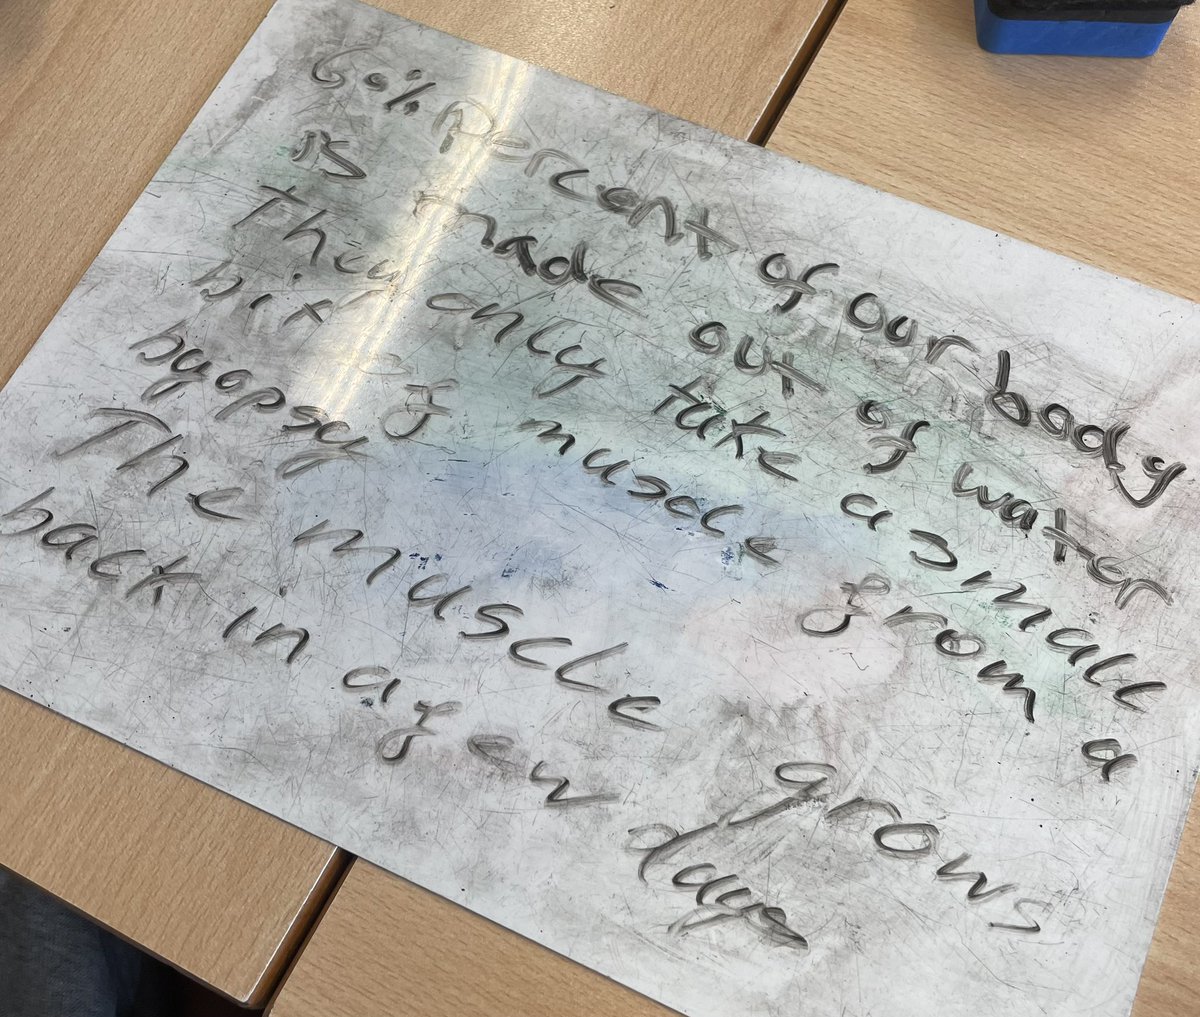 60% Percent of our body
is made out of water
they only take a small
bit of muscle from a
byopsy
The muscle grows
back in a few days